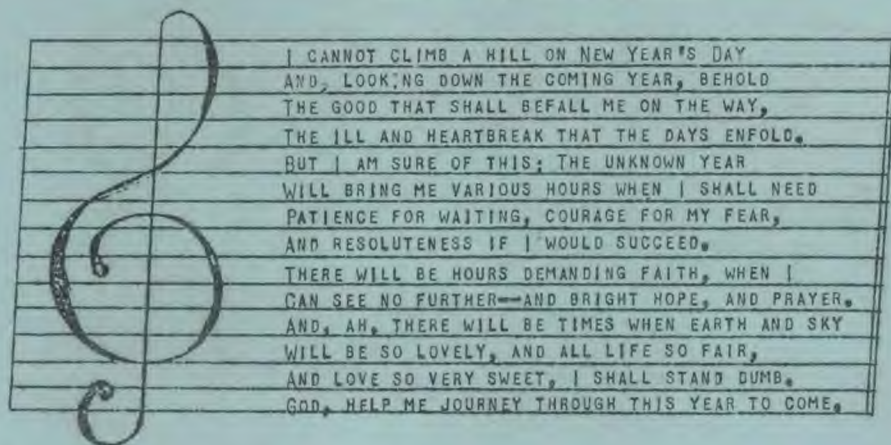 I CANNOT CLIMB A HILL ON NEW YEAR'S DAY
AND, LOOKING DOWN THE COMING YEAR, BEHOLD
THE GOOD THAT SHALL BEFALL ME ON THE WAY,
THE ILL AND HEARTBREAK THAT THE DAYS ENFOLD.
BUT I AM SURE OF THIS: THE UNKNOWN YEAR
WILL BRING ME VARIOUS HOURS WHEN I SHALL NEED
PATIENCE FOR WAITING, COURAGE FOR MY FEAR,
AND RESOLUTENESS IF I WOULD SUCCEED.
THERE WILL BE HOURS DEMANDING FAITH, WHEN I
CAN SEE NO FURTHER--AND BRIGHT HOPE, AND PRAYER.
AND, AH, THERE WILL BE TIMES WHEN EARTH AND SKY
WILL BE SO LOVELY, AND ALL LIFE SO FAIR,
AND LOVE SO VERY SWEET, I SHALL STAND DUMB.
GOD, HELP ME JOURNEY THROUGH THIS YEAR TO COME.